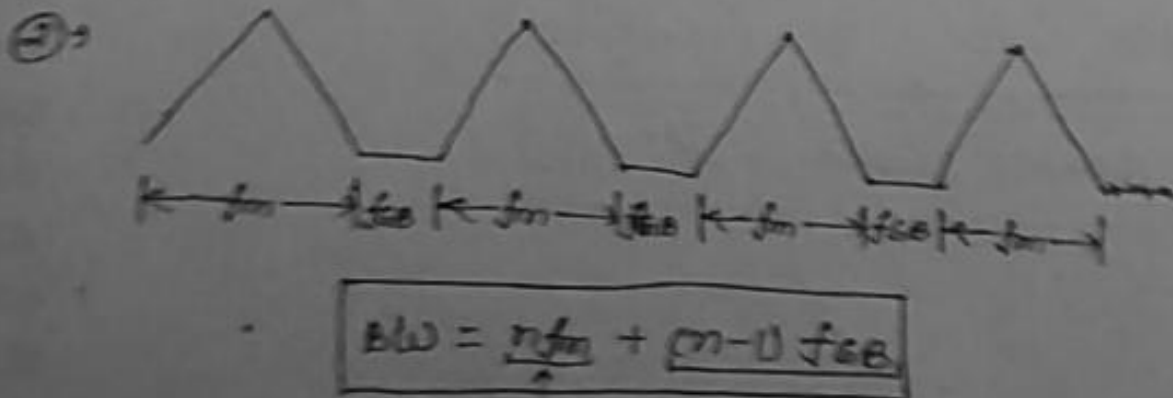 fm fGB fm fGB fm fGB fm
BW = nfm + (n-1) fGB